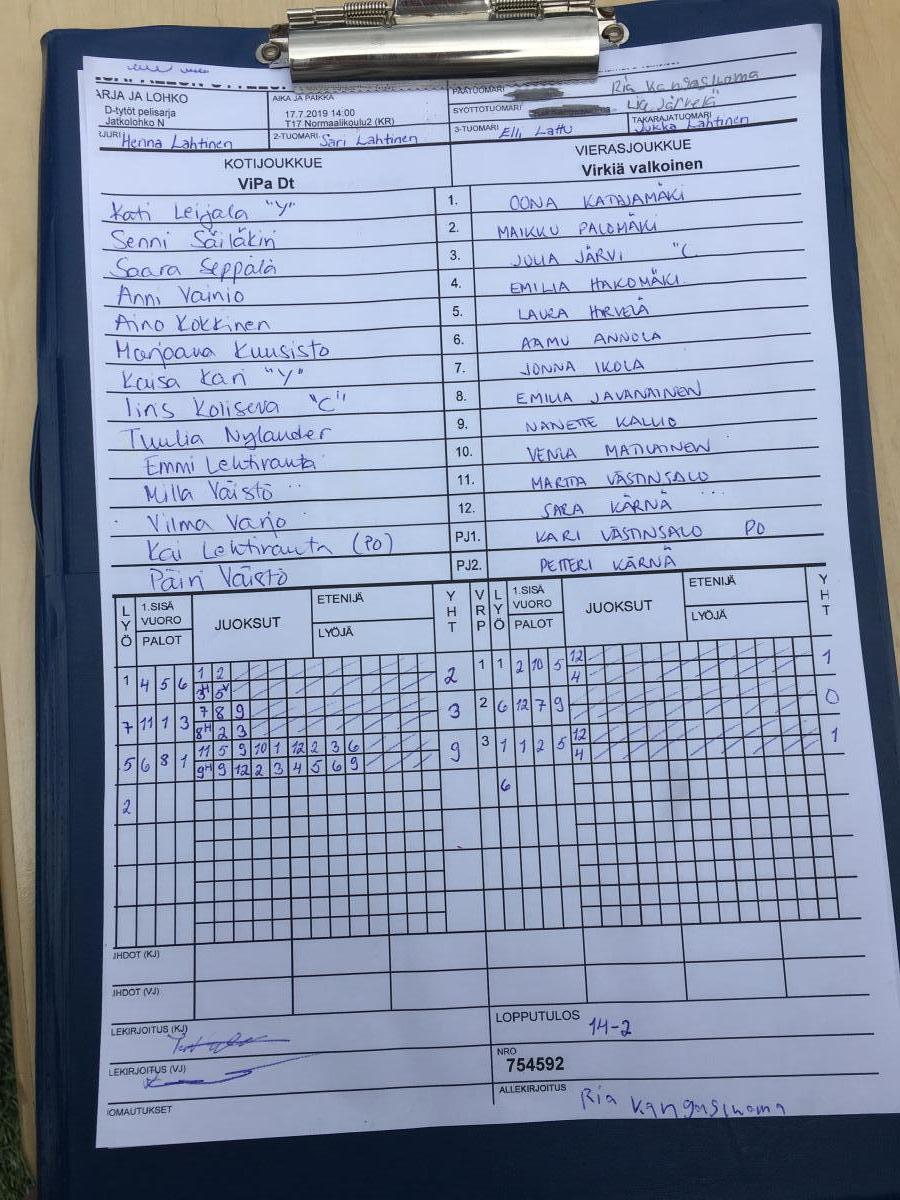 PÄÄTUOMARI Ria Kangasluoma
ARJA JA LOHKO AIKA JA PAIKKA SYÖTTÖTUOMARI Järvelä
D-tytöt pelisarja 17.7.2019 14:00
Jatkolohko N T17 Normaalikoulu2 (KR) TAKARAJATUOMARI
JURI Henna Lahtinen 2-TUOMARI Sari Lahtinen 3-TUOMARI Elli Lattu Jukka Lahtinen
KOTIJOUKKUE VIERASJOUKKUE
ViPa Dt Virkiä valkoinen
Kati Leijala "Y" 1. OONA KATAJAMÄKI
Senni Säiläkin 2. MAIKKU PALOMÄKI
Saara Seppälä 3. JULIA JÄRVI "C
Anni Vainio 4. EMILIA HAKOMÄKI
Aino Kokkinen 5. LAURA HIRVELÄ
Marjaana Kuusisto 6. AAMU ANNOLA
Kaisa Kari "Y" 7. JONNA IKOLA
Iiris Koliseva "C" 8. EMILIA JAVANAINEN
Tuulia Nylander 9. NANETTE KALLIO
Emmi Lehtiranta 10. VENLA MATILAINEN
Milla Väistö 11. MARTTA VÄSTINSALO
Vilma Varjo 12. SARA KÄRNÄ
Kai Lehtiranta (PO) PJ1. KARI VÄSTINSALO PO
Päivi Väistö PJ2. PETTERI KÄRNÄ
LYÖ 1.SISÄ VUORO PALOT JUOKSUT ETENIJÄ LYÖJÄ YHT VRP LYÖ 1.SISÄ VUORO PALOT JUOKSUT ETENIJÄ LYÖJÄ YHT
1 4 5 6 1 2 2 1 1 2 10 5 12 1
3H 5V 4
7 11 1 3 7 8 9 3 2 6 12 7 9 0
8H 2 3
5 6 8 1 11 5 9 10 1 12 2 3 6 9 3 1 1 2 5 12 1
9H 9 12 2 3 4 5 6 9 4
2 6
JHDOT (KJ)
JHDOT (VJ)
LEKIRJOITUS (KJ) LOPPUTULOS 14-2
LEKIRJOITUS (VJ) NRO
754592
OMAUTUKSET ALLEKIRJOITUS Ria Kangasluoma